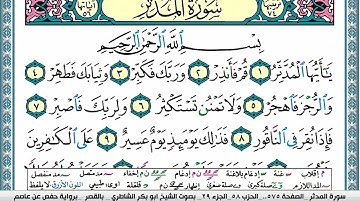 سورة المدثر
بِسْمِ اللَّهِ الرَّحْمَٰنِ الرَّحِيمِ
يَا أَيُّهَا الْمُدَّثِّرُ ١ قُمْ فَأَنذِرْ ٢ وَرَبَّكَ فَكَبِّرْ ٣ وَثِيَابَكَ فَطَهِّرْ ٤
وَالرُّجْزَ فَاهْجُرْ ٥ وَلَا تَمْنُن تَسْتَكْثِرُ ٦ وَلِرَبِّكَ فَاصْبِرْ ٧
فَإِذَا نُقِرَ فِي النَّاقُورِ ٨ فَذَٰلِكَ يَوْمَئِذٍ يَوْمٌ عَسِيرٌ ٩ عَلَى الْكَافِرِينَ
سورة المدثر .. الصفحة ٥٧٥.. الحزب ٥٨ الجزء ٢٩ بصوت الشيخ ابو بكر الشاطري .. بالقصر .. برواية حفص عن عاصم